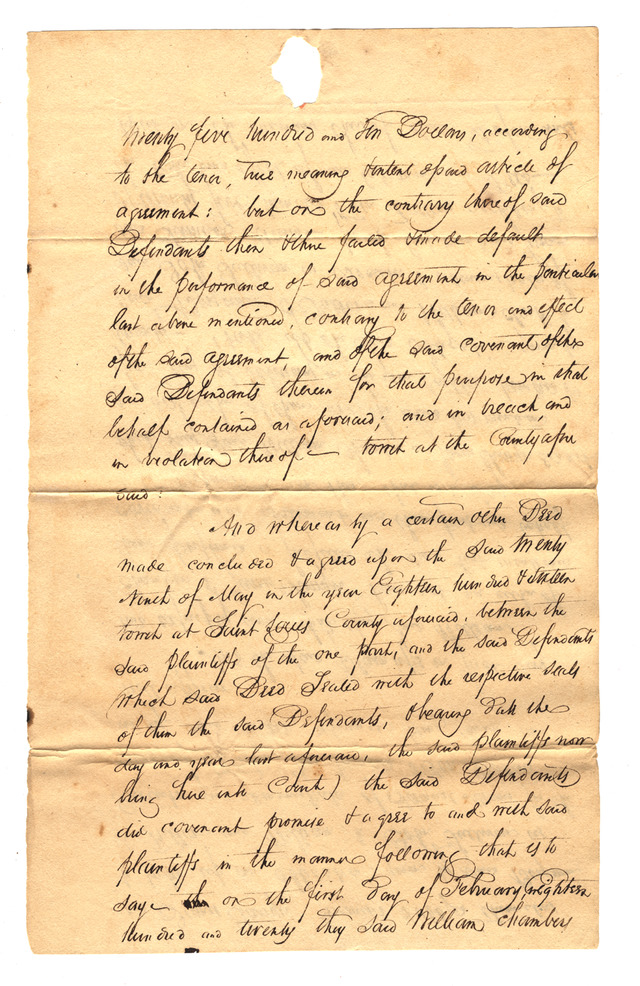 twenty five hundred and ten Dollars, according
to the tenor, true meaning & intent of said article of
agreement: but on the contrary thereof said
Defendants then & there failed & made default
in the performance of said agreement in the particular
last above mentioned, contrary to the tenor and effect
of the said agreement, and of the said covenant of the
said Defendants therein for that purpose in that
behalf contained as aforesaid; and in breach and
in violation thereof — towit at the County afore
said:
And whereas by a certain other Deed
made concluded & agreed upon the said twenty
Ninth of May in the year Eighteen hundred &
towit at Saint Louis County aforesaid, between the
said plaintiffs of the one part, and the said Defendants
which said Deed Sealed with the respective seals
of them the said Defendants, & bearing date the
day and year last aforesaid, the said plaintiffs now
bring here into Court) the said Defendants
did covenant promise & agree to and with said
plaintiffs in the manner following that is to
say — on the first day of February, Eighteen
hundred and twenty they said William Chambers